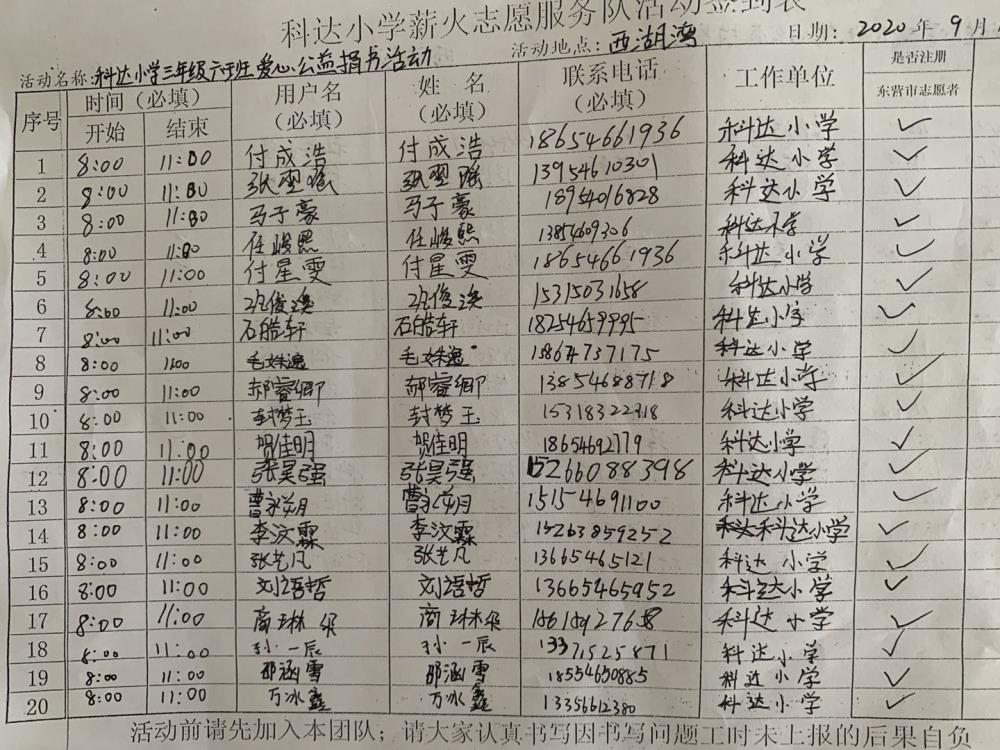 科达小学薪火志愿服务队活动签到表
活动名称:科达小学三年级六班爱心公益捐书活动 活动地点:西湖湾 日期:2020年9月
序号 时间(必填) 用户名(必填) 姓名(必填) 联系电话(必填) 工作单位 是否注册东营市志愿者
开始 结束
1 8:00 11:00 付成浩 付成浩 18654661936 科达小学 ✓
2 8:00 11:00 张翌瑶 张翌瑶 13954610301 科达小学 ✓
3 8:00 11:00 马子豪 马子豪 18954016828 科达小学 ✓
4 8:00 11:00 任峻熙 任峻熙 1385469306 科达小学 ✓
5 8:00 11:00 付星雯 付星雯 18654661936 科达小学 ✓
6 8:00 11:00 15315031658 科达小学 ✓
7 8:00 11:00 石皓轩 石皓轩 18254659995 科达小学 ✓
8 8:00 1100 毛姝逸 毛姝逸 15864737175 科达小学 ✓
9 8:00 11:00 郝睿卿 郝睿卿 13854688718 科达小学 ✓
10 8:00 11:00 封梦玉 封梦玉 15318322318 科达小学 ✓
11 8:00 11:00 贺佳明 贺佳明 18654692779 科达小学 ✓
12 8:00 11:00 张昊强 张昊强 15266088398 科达小学 ✓
13 8:00 11:00 15154691100 科达小学 ✓
14 8:00 11:00 李汶霖 李汶霖 15263859252 科达小学 ✓
15 8:00 11:00 张艺凡 张艺凡 13665465121 科达小学 ✓
16 8:00 11:00 刘语哲 刘语哲 13665465952 科达小学 ✓
17 8:00 11:00 商琳 商琳 科达小学 ✓
18 8:00 11:00 孙一辰 孙一辰 13371525871 科达小学 ✓
19 8:00 11:00 邵涵雪 邵涵雪 18554650885 科达小学 ✓
20 8:00 11:00 万冰鑫 万冰鑫 13356612380 科达小学 ✓
活动前请先加入本团队;请大家认真书写因书写问题工时未上报的后果自负